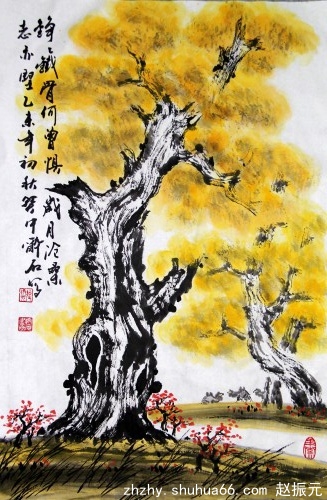 錚々鐵骨何曾惧歲月沧桑
志亦堅乙未年初秋
zhzhy.shuhua66.com 赵振元